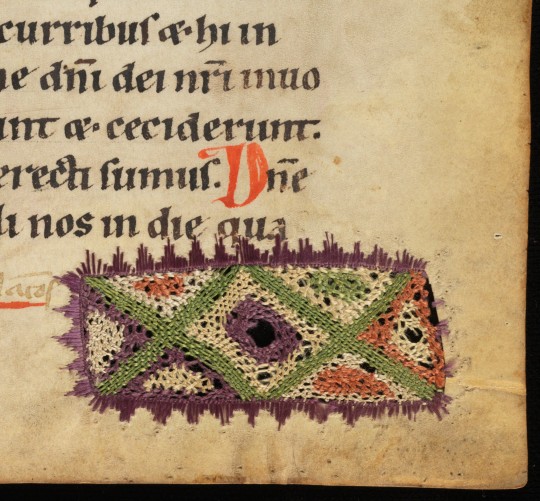 curribus æ· hi in
ne dn̄i dei nr̄i inuo
unt æ· ceciderunt.
erecti sumus. Dn̄e
di nos in die qua